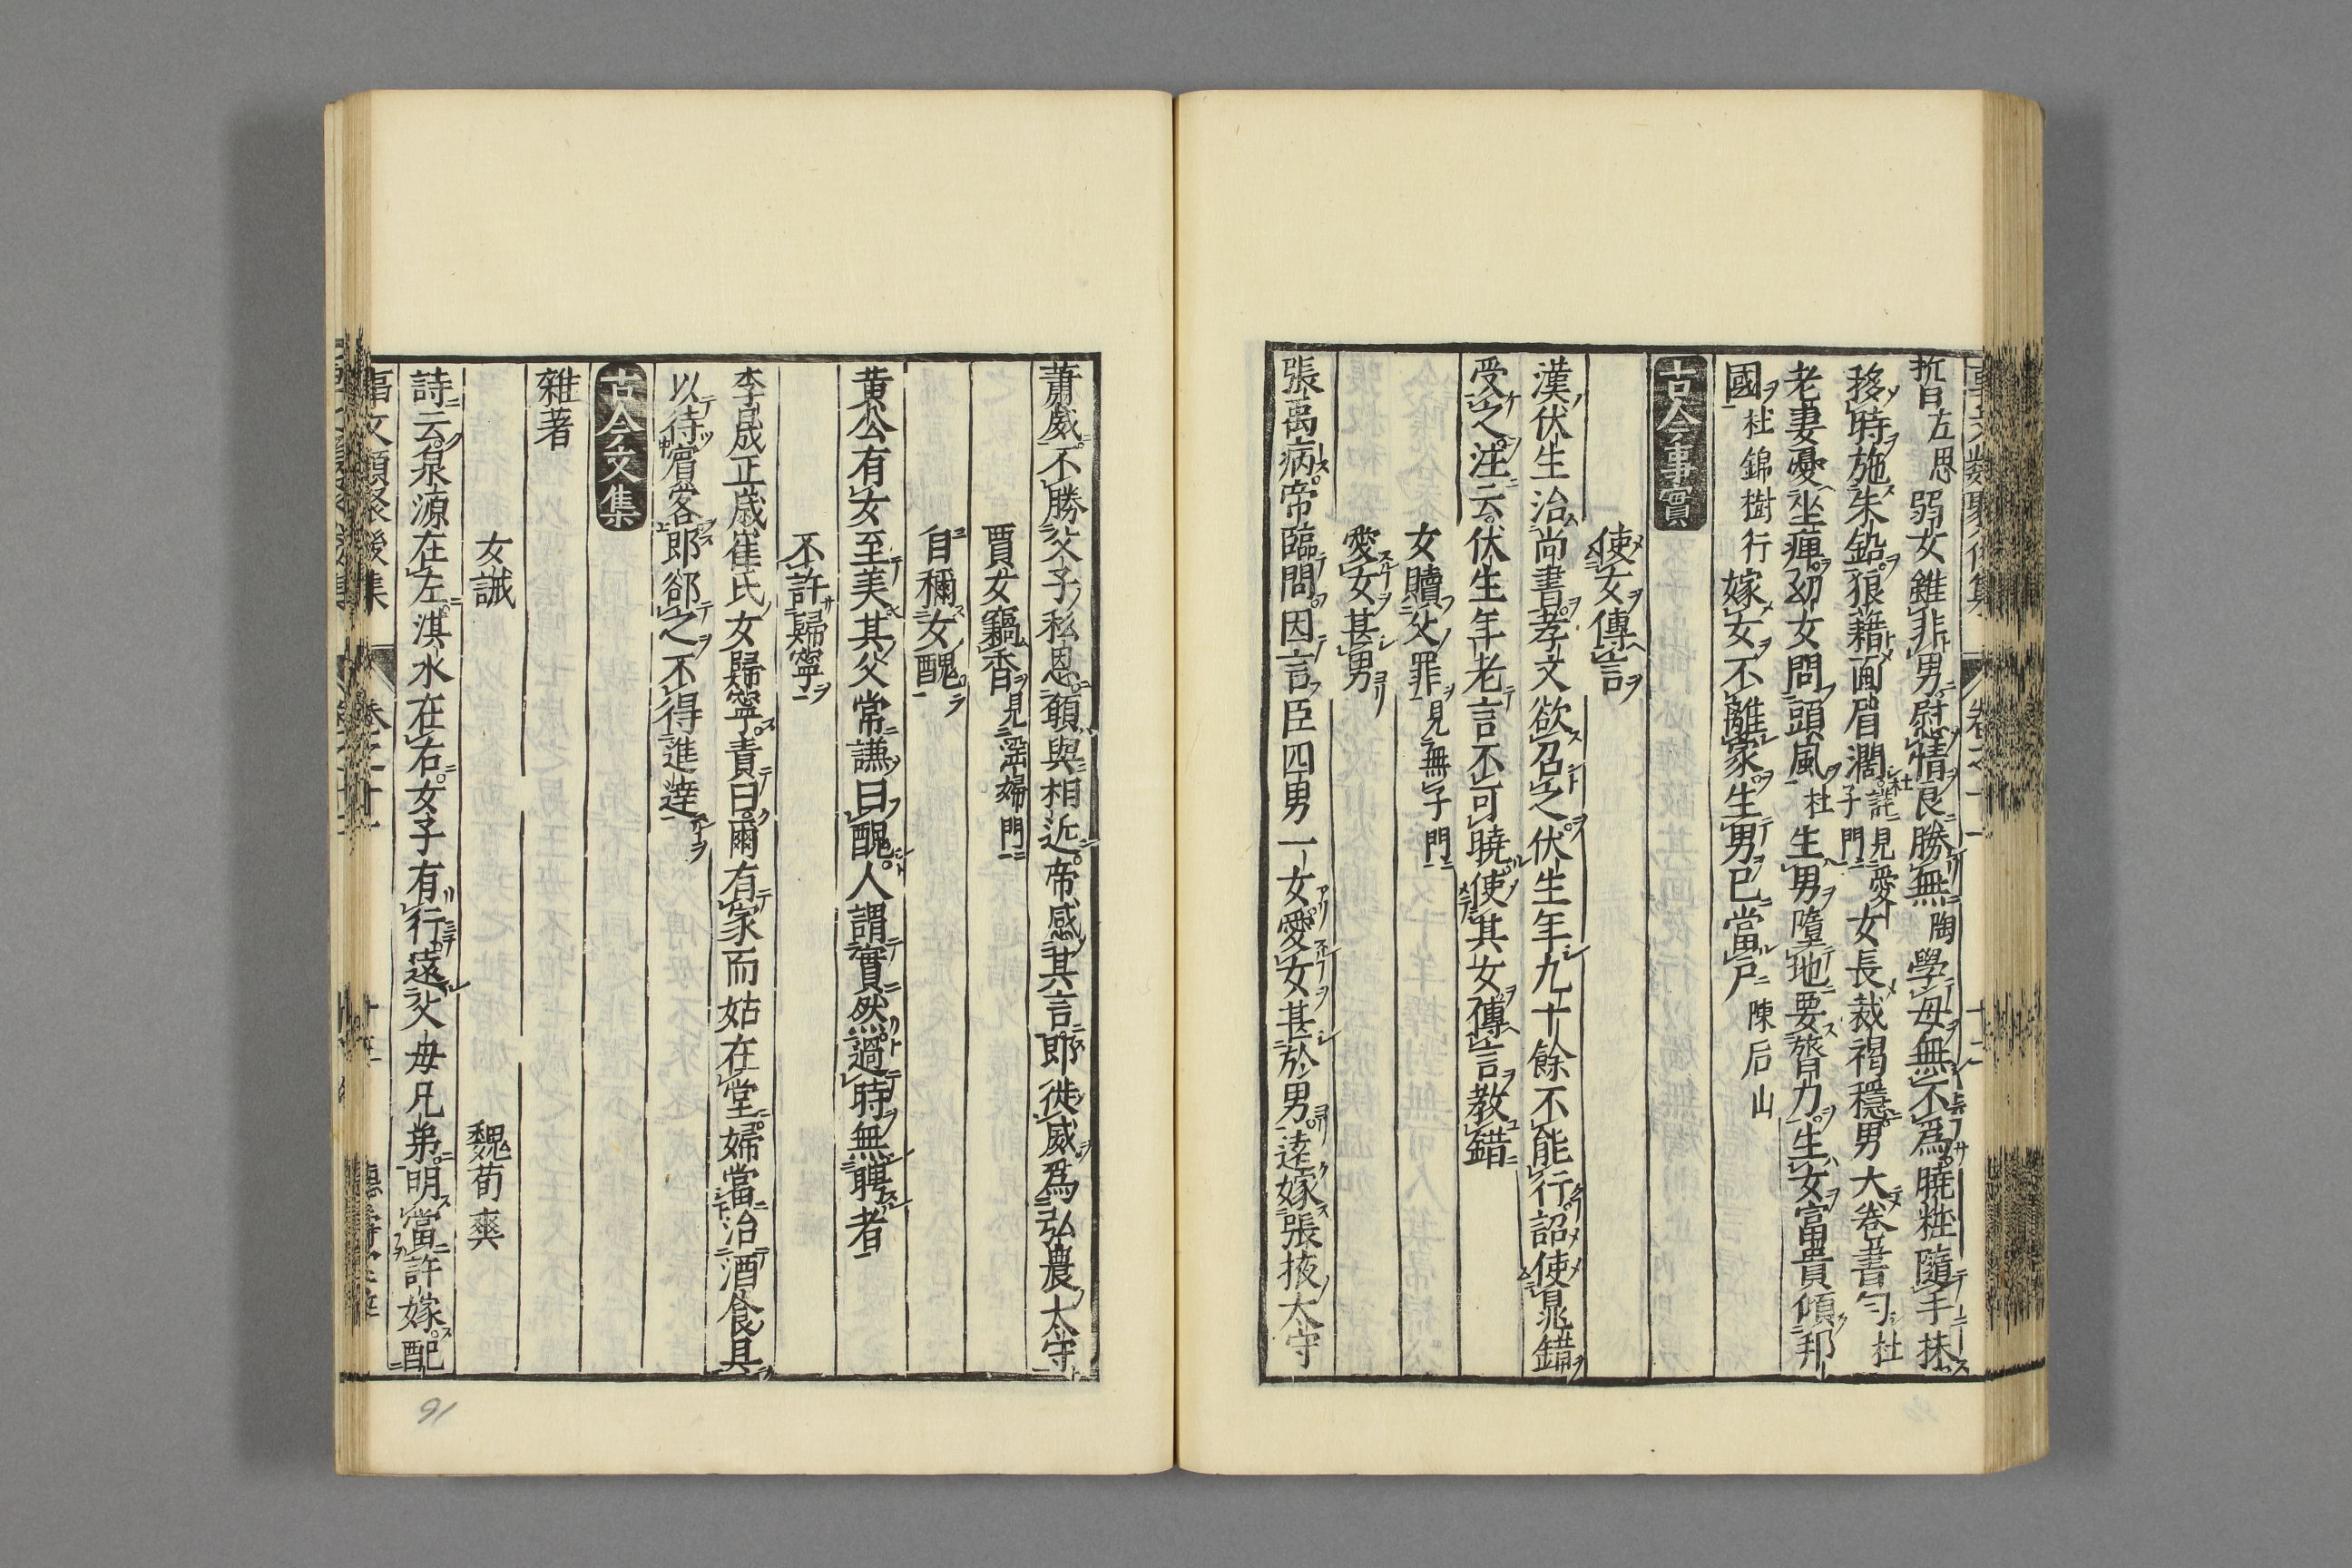 晢左思弱女雖非男慰情良勝無陶學母無不爲曉粧隨手抹
移時施朱鉛狼藉画眉濶杜詩子見愛門女長裁褐穩男大卷書勻杜
老妻憂坐痺幼女問頭風杜生男墮地要膂力生女富貴傾邦
國杜錦樹行嫁女不離家生男已當戸陳后山
古今事實
使女傳言
漢伏生治尚書孝文欲召之伏生年九十餘不能行詔使晁錯
受之注云伏生年老言不可曉使其女傳言教錯
女贖父罪見無子門
愛女甚男
張禹病帝臨問因言臣四男一女愛女甚於男逺嫁張掖太守
蕭威不勝父子私恩願與相近帝感其言即徙威爲弘農太守
賈女竊香見淫婦門
自稱女醜
黄公有女至美其父常謙曰醜人謂實然過時無聘者
不許歸寧
李晟正歲崔氏女歸寧責曰爾有家而姑在堂婦當治酒食具
以待賓客即郤之不得進達
古今文集
雜著
女誡 魏荀爽
詩云泉源在左淇水在右女子有行逺父母兄弟明當許嫁配
事文類聚後集 卷之十一